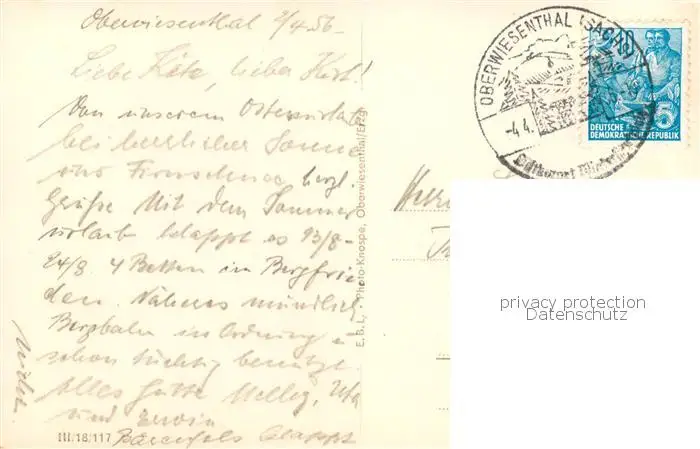 Oberwiesenthal 2/4.56-
Liebe Käte, lieber Kurt!
Von unserem Osterurlaub
bei herrlicher Sonne
und Firnschnee herzl.
Grüße Mit dem Sommer
urlaub klappt es 13/8-
24/8 4 Betten im Bergfrie
den. Näheres mündlich
Bergbahn in Ordnung u
schon tüchtig benutzt.
Alles Gute
und Erwin
Bärenfels klappt
III/18/117
E.B.L. Photo-Knospe, Oberwiesenthal/Erzg.
OBERWIESENTHAL (SACHS)
-4.4.
DEUTSCHE
DEMOKRATISCHE REPUBLIK
5
privacy protection
Datenschutz